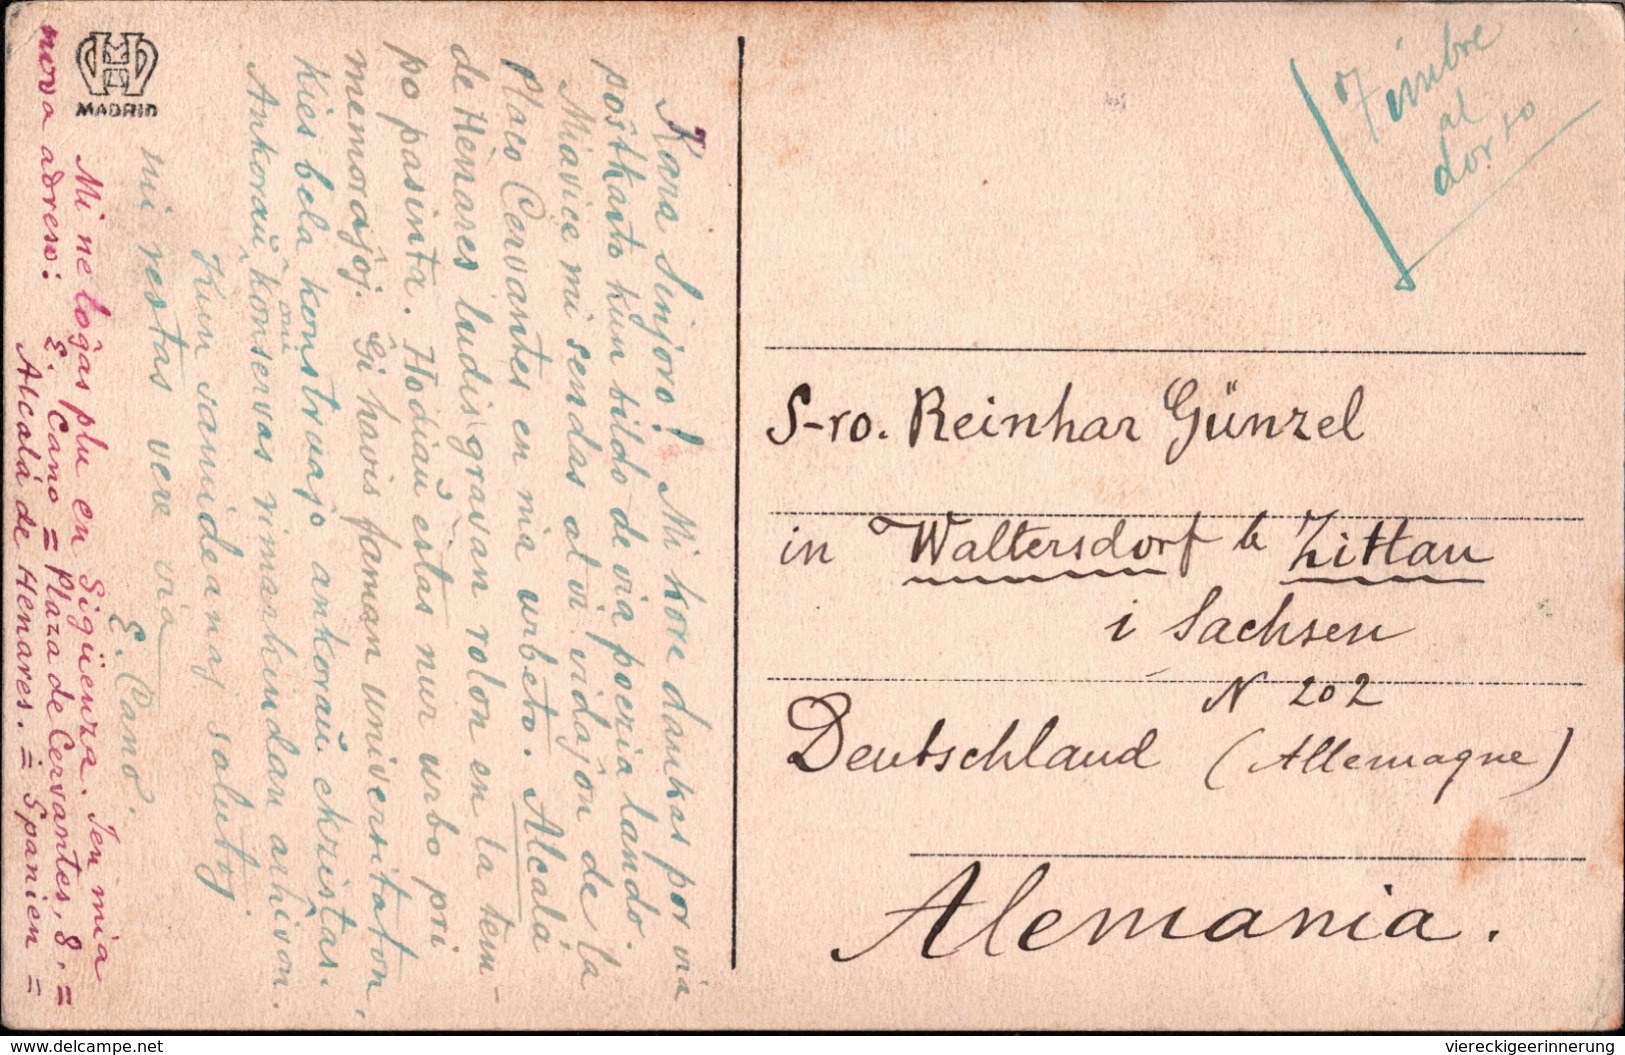 MADRID
Kara Sinjoro! Mi kore dankas por via
poŝtkarto kun bildo de via poezia lando.
Miavice mi sendas al vi vidaĵon de la
Placo Cervantes en mia urbeto. Alcalá
de Henares ludis gravan rolon en la tem-
po pasinta. Hodiaŭ estas nur urbo pri
memoraĵoj. Ĝi havis faman universitaton,
kies bela konstruaĵo ankoraŭ ekzistas.
Ankoraŭ oni konservas rimarkindan arĥivon.
Kun samideanaj salutoj
mi restas vere via
E. Cano.
Mi ne loĝas plu en Sigüenza. Jen mia
nova adreso: E. Cano = Plaza de Cervantes, 8. =
Alcalá de Henares. = Spanien =
Timbre
al
dorso
S-ro. Reinhar Günzel
in Waltersdorf b Zittau
i Sachsen
N 202
Deutschland (Allemagne)
Alemania.
vge-memories.com
viereckigeerinnerung